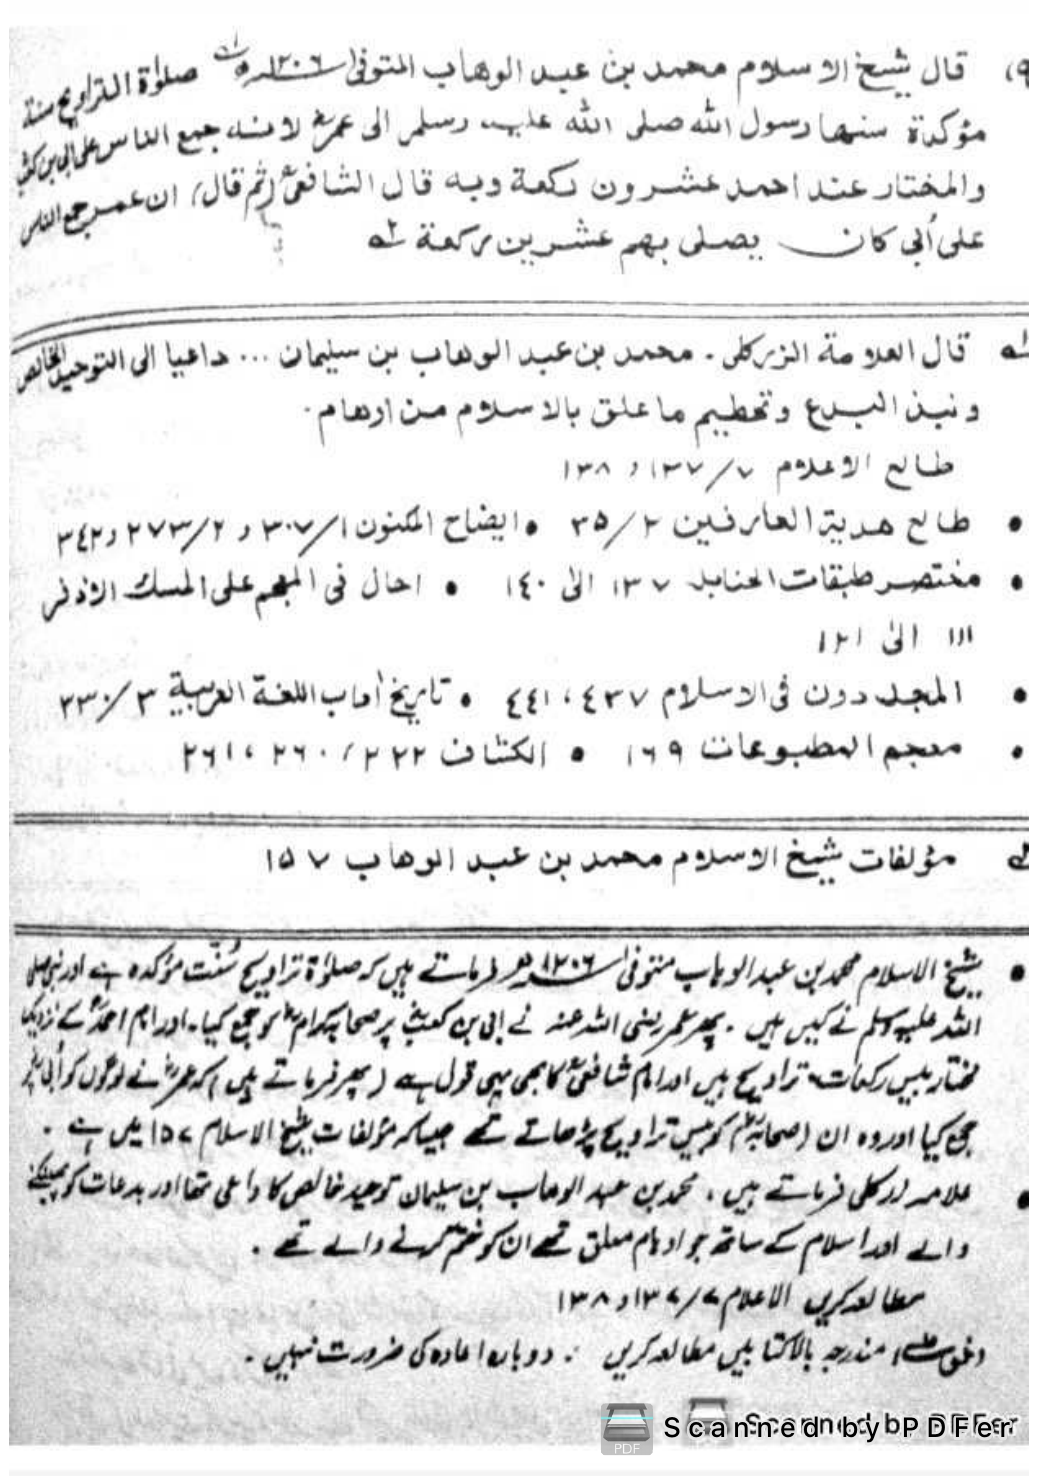 (٩ قال شيخ الاسلام محمد بن عبد الوهاب المتوفى ١٢٠٦ھ صلوٰة التراويح سنة
مؤكدة سنها رسول الله صلى الله عليه وسلم الى عمرؓ لانه جمع الناس على ابى بن كعبؓ
والمختار عند احمد عشرون ركعة وبه قال الشافعىؒ (ثم قال) ان عمر جمع الناس
على أبي كان يصلى بهم عشرين ركعة
قال العلامة الزركلى . محمد بن عبد الوهاب بن سليمان ... داعيا الى التوحيد الخالص
ونبذ البدع وتحطيم ما علق بالاسلام من اوهام .
طالع الاعلام ٧/١٣٧ و ١٣٨
• طالع هدية العارفين ٢/٣٥ • ايضاح المكنون ١/٣٠٧ و ٢/٢٧٣ و ٣٤٢
• مختصر طبقات الحنابلہ ١٣٧ الىٰ ١٤٠ • احال فى المعجم على المسك الاذفر
١١١ الىٰ ١٢١
• المجددون فى الاسلام ٤٣٧، ٤٤١ • تاريخ آداب اللغة العربية ٣/٣٣٠
• معجم المطبوعات ١٦٩ • الكشاف ٢٢٢/، ٢٦٠، ٢٦١
مؤلفات شيخ الاسلام محمد بن عبد الوهاب ١٥٧
• شیخ الاسلام محمد بن عبد الوہاب متوفیٰ ١٢٠٦ھ فرماتے ہیں کہ صلوٰۃ تراویح سُنّت مؤکدہ ہے اور نبی صلی
اللہ علیہ وسلم نے کیں ہیں ۔ پھر عمر رضی اللہ عنہ نے ابی بن کعبؓ پر صحابہ کرامؓ کو جمع کیا۔ اور امام احمدؒ کے نزدیک
مختار بیس رکعات تراویح ہیں اور امام شافعیؒ کا بھی یہی قول ہے (پھر فرماتے ہیں) کہ عمرؓ نے لوگوں کو اُبیؓ پر
جمع کیا اور وہ ان (صحابہؓ) کو بیس تراویح پڑھاتے تھے جیسا کہ مؤلفات شیخ الاسلام ١٥٧ میں ہے ۔
• علامہ زرکلی فرماتے ہیں ، محمد بن عبد الوھاب بن سلیمان توحید خالص کا داعی تھا اور بدعات کو پھینکنے
والے اور اسلام کے ساتھ جو اوہام معلق تھے ان کو ختم کرنے والے تھے ۔
مطالعہ کریں الاعلام ٧/١٣٧ و ١٣٨
مندرجہ بالا کتابیں مطالعہ کریں . دوبارہ اعادہ کی ضرورت نہیں ۔
Scanned by PDFer
Scanned by PDFer